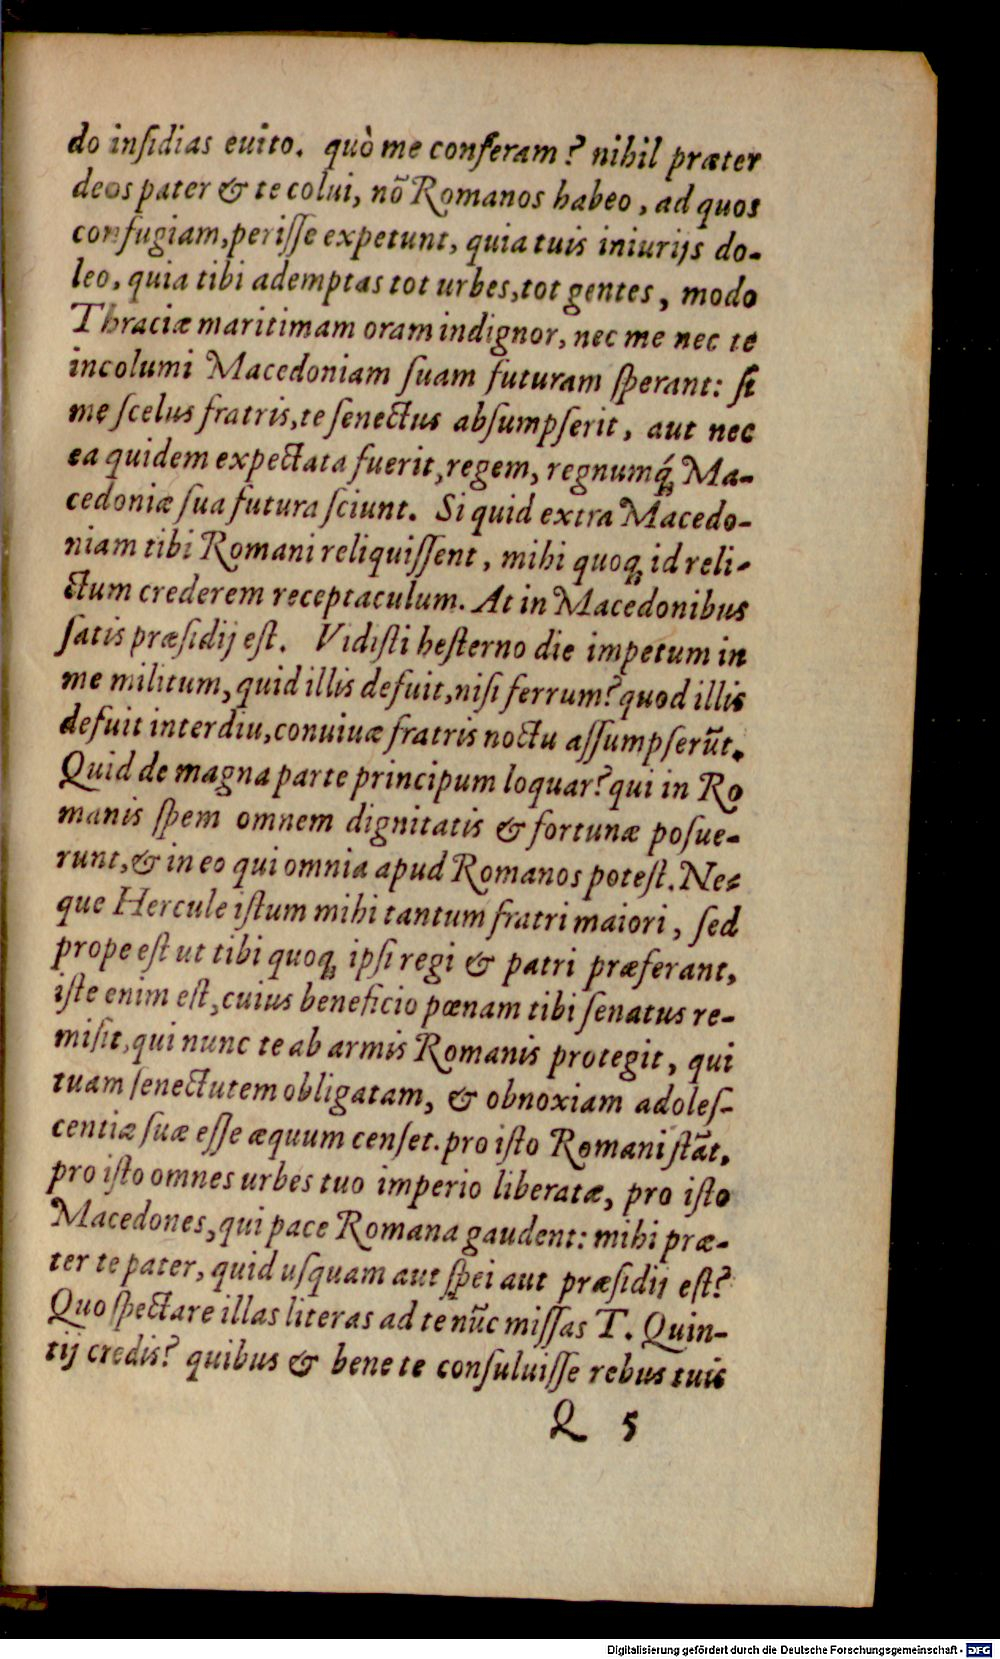 do insidias euito. quò me conferam? nihil præter
deos pater & te colui, nõ Romanos habeo, ad quos
confugiam, perisse expetunt, quia tuis iniurijs do-
leo, quia tibi ademptas tot urbes, tot gentes, modo
Thraciæ maritimam oram indignor, nec me nec te
incolumi Macedoniam suam futuram sperant: si
me scelus fratris, te senectus absumpserit, aut nec
ea quidem expectata fuerit, regem, regnumq́; Ma-
cedoniæ sua futura sciunt. Si quid extra Macedo-
niam tibi Romani reliquissent, mihi quoq; id reli-
ctum crederem receptaculum. At in Macedonibus
satis præsidij est. Vidisti hesterno die impetum in
me militum, quid illis defuit, nisi ferrum? quod illis
defuit interdiu, conuiuæ fratris noctu assumpserũt.
Quid de magna parte principum loquar? qui in Ro
manis spem omnem dignitatis & fortunæ posue-
runt, & in eo qui omnia apud Romanos potest. Ne-
que Hercule istum mihi tantum fratri maiori, sed
prope est ut tibi quoq; ipsi regi & patri præferant,
iste enim est, cuius beneficio pœnam tibi senatus re-
misit, qui nunc te ab armis Romanis protegit, qui
tuam senectutem obligatam, & obnoxiam adoles-
centiæ suæ esse æquum censet. pro isto Romani stãt,
pro isto omnes urbes tuo imperio liberatæ, pro isto
Macedones, qui pace Romana gaudent: mihi præ-
ter te pater, quid usquam aut spei aut præsidij est?
Quo spectare illas literas ad te nũc missas T. Quin-
tij credis? quibus & bene te consuluisse rebus tuis
Q 5
Digitalisierung gefördert durch die Deutsche Forschungsgemeinschaft - DFG